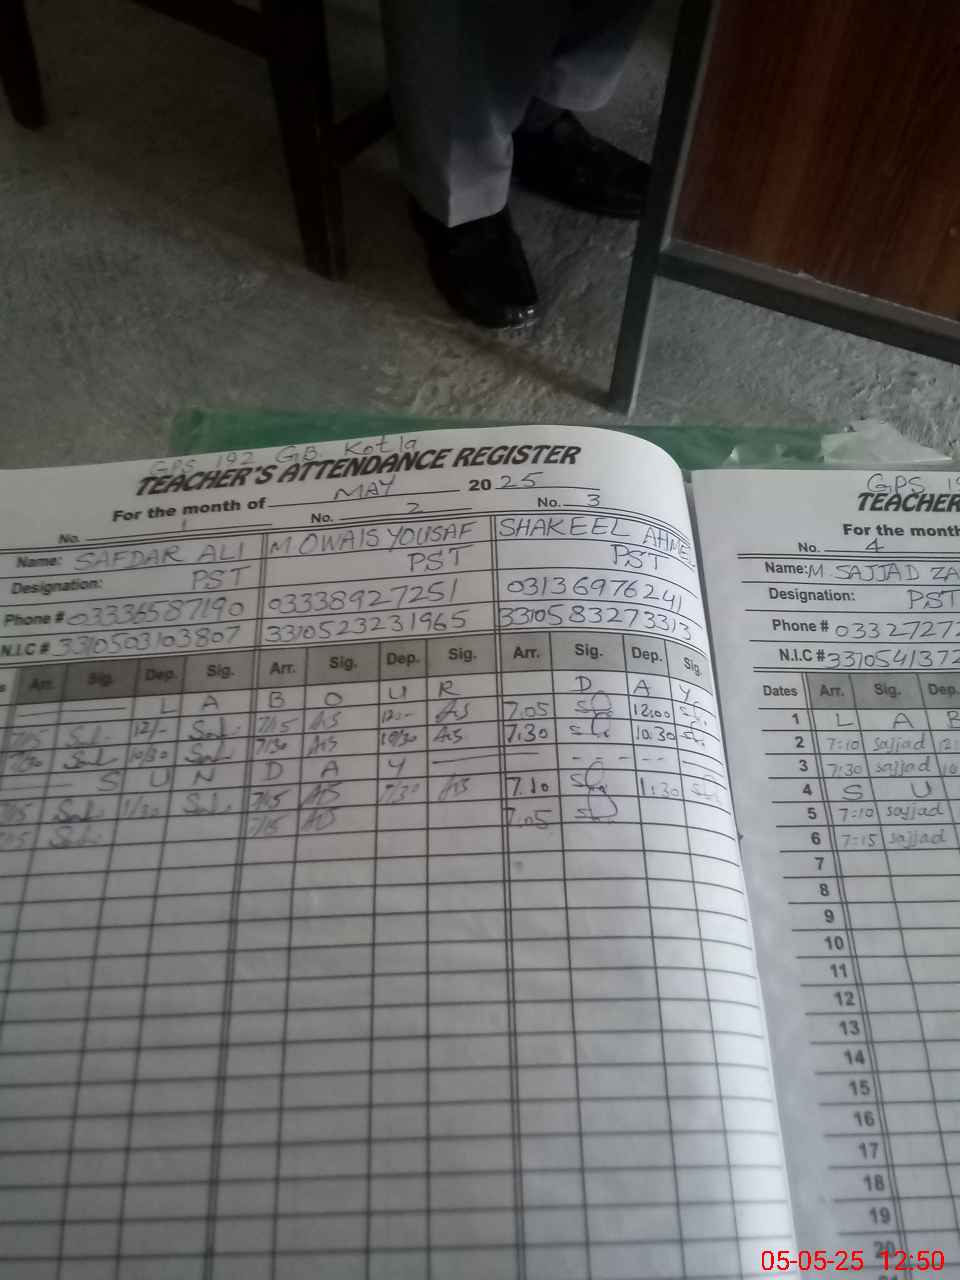 GPS 192 GB. Kotla
TEACHER'S ATTENDANCE REGISTER
For the month of MAY 20 25
No. 1 No. 2 No. 3
Name: SAFDAR ALI M OWAIS YOUSAF SHAKEEL AHMED
Designation: PST PST PST
Phone # 03336587190 03338927251 03136976241
N.I.C # 3310503103807 3310523231965 3310583273313
Arr. Sig. Dep. Sig. Arr. Sig. Dep. Sig. Arr. Sig. Dep. Sig.
L A B O U R D A Y
7/15 12/- 7/15 12:- 7.05 12:00
7/30 10/30 7/30 10/30 7.30 10.30
S U N D A Y
7/15 1/30 7/15 7.10 1:30
7/15 7.05
GPS 19
TEACHER
For the month
No. 4
Name: M SAJJAD ZA
Designation: PST
Phone # 0332727
N.I.C # 330541372
Dates Arr. Sig. Dep.
1 L A B
2 7:10 sajjad
3 7:30 sajjad
4 S U
5 7:10 sajjad
6 7:15 sajjad
7
8
9
10
11
12
13
14
15
16
17
18
19
20
05-05-25 12:50